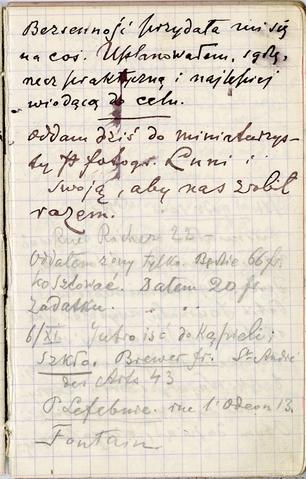 Bezsenność przydała mi się
na coś. Uplanowałem, sądzę,
rzecz praktyczną i najlepiej
wiodącą do celu.
Oddam dziś do miniaturzys-
ty fotogr. Luni i
swoją, aby nas zrobił
razem.
Rue Richer 22 –
Oddałem żony tylko. Będzie 66 fr.
kosztować. Dałem 20 fr.
Zadatku.
6/XI. Jutro iść do kąpieli;
Szkła. Brewer fr. St André
des Arts 43
P. Lefebure. rue l'Odeon 13.
Fontain